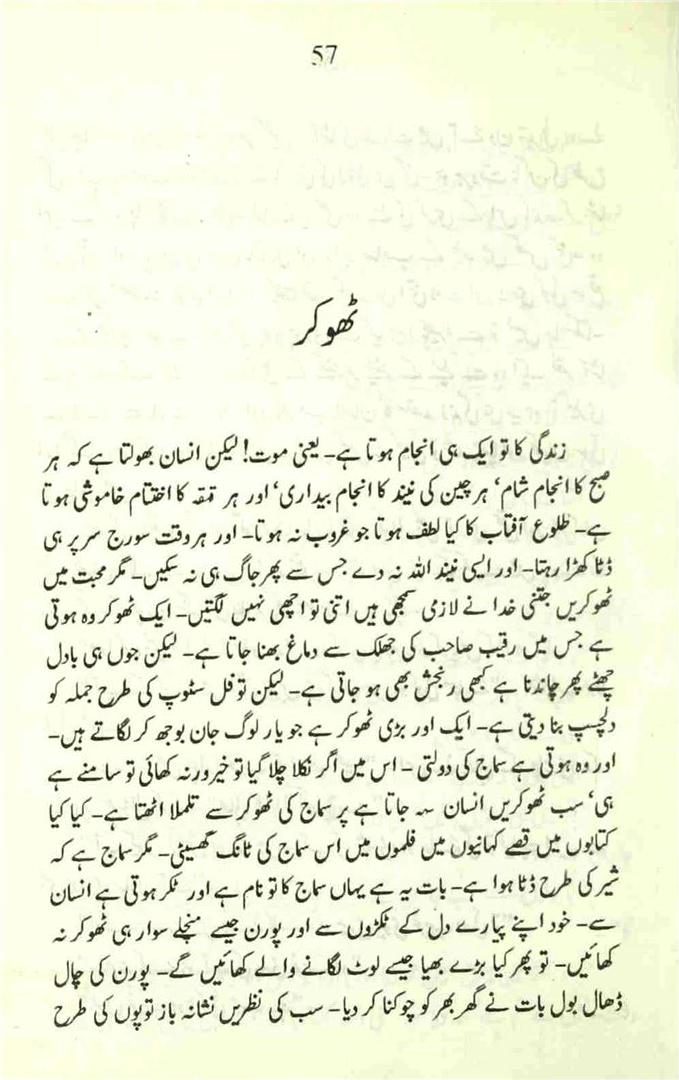 57
ٹھوکر
زندگی کا تو ایک ہی انجام ہوتا ہے۔ یعنی موت! لیکن انسان بھولتا ہے کہ ہر
صبح کا انجام شام‘ ہر چین کی نیند کا انجام بیداری‘ اور ہر قمقہ کا اختتام خاموشی ہوتا
ہے۔ طلوع آفتاب کا کیا لطف ہوتا جو غروب نہ ہوتا۔ اور ہر وقت سورج سر پر ہی
ڈٹا کھڑا رہتا۔ اور ایسی نیند اللہ نہ دے جس سے پھر جاگ ہی نہ سکیں۔ مگر محبت میں
ٹھوکریں جتنی خدا نے لازمی سمجھی ہیں اتنی تو اچھی نہیں لگتیں۔ ایک ٹھوکر وہ ہوتی
ہے جس میں رقیب صاحب کی جھلک سے دماغ بھنا جاتا ہے۔ لیکن جوں ہی بادل
چھٹے پھر چاندنا ہے کبھی رنجش بھی ہو جاتی ہے۔ لیکن تو فل سٹوپ کی طرح جملہ کو
دلچسپ بنا دیتی ہے۔ ایک اور بڑی ٹھوکر ہے جو یار لوگ جان بوجھ کر لگاتے ہیں۔
اور وہ ہوتی ہے سماج کی دولتی ۔ اس میں اگر نکلا چلا گیا تو خیر ورنہ کھائی تو سامنے ہے
ہی‘ سب ٹھوکریں انسان سہ جاتا ہے پر سماج کی ٹھوکر سے تلملا اٹھتا ہے۔ کیا کیا
کتابوں میں قصے کہانیوں میں فلموں میں اس سماج کی ٹانگ گھسیٹی۔ مگر سماج ہے کہ
شیر کی طرح ڈٹا ہوا ہے۔ بات یہ ہے یہاں سماج کا تو نام ہے اور ٹکر ہوتی ہے انسان
سے۔ خود اپنے پیارے دل کے ٹکڑوں سے اور پورن جیسے منچلے سوار ہی ٹھوکر نہ
کھائیں۔ تو پھر کیا بڑے بھیا جیسے لوٹ لگانے والے کھائیں گے۔ پورن کی چال
ڈھال بول بات نے گھر بھر کو چوکنا کر دیا۔ سب کی نظریں نشانہ باز توپوں کی طرح